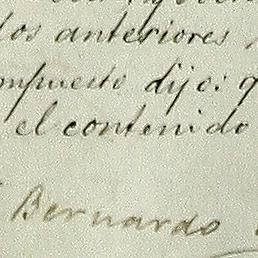 los anteriores
mpuesto dijo: q
el contenido
Bernardo